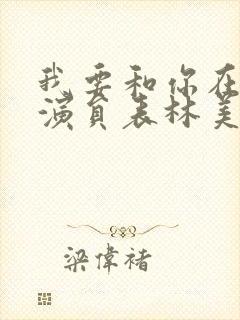 我要和你在
演员表林美
梁偉褚